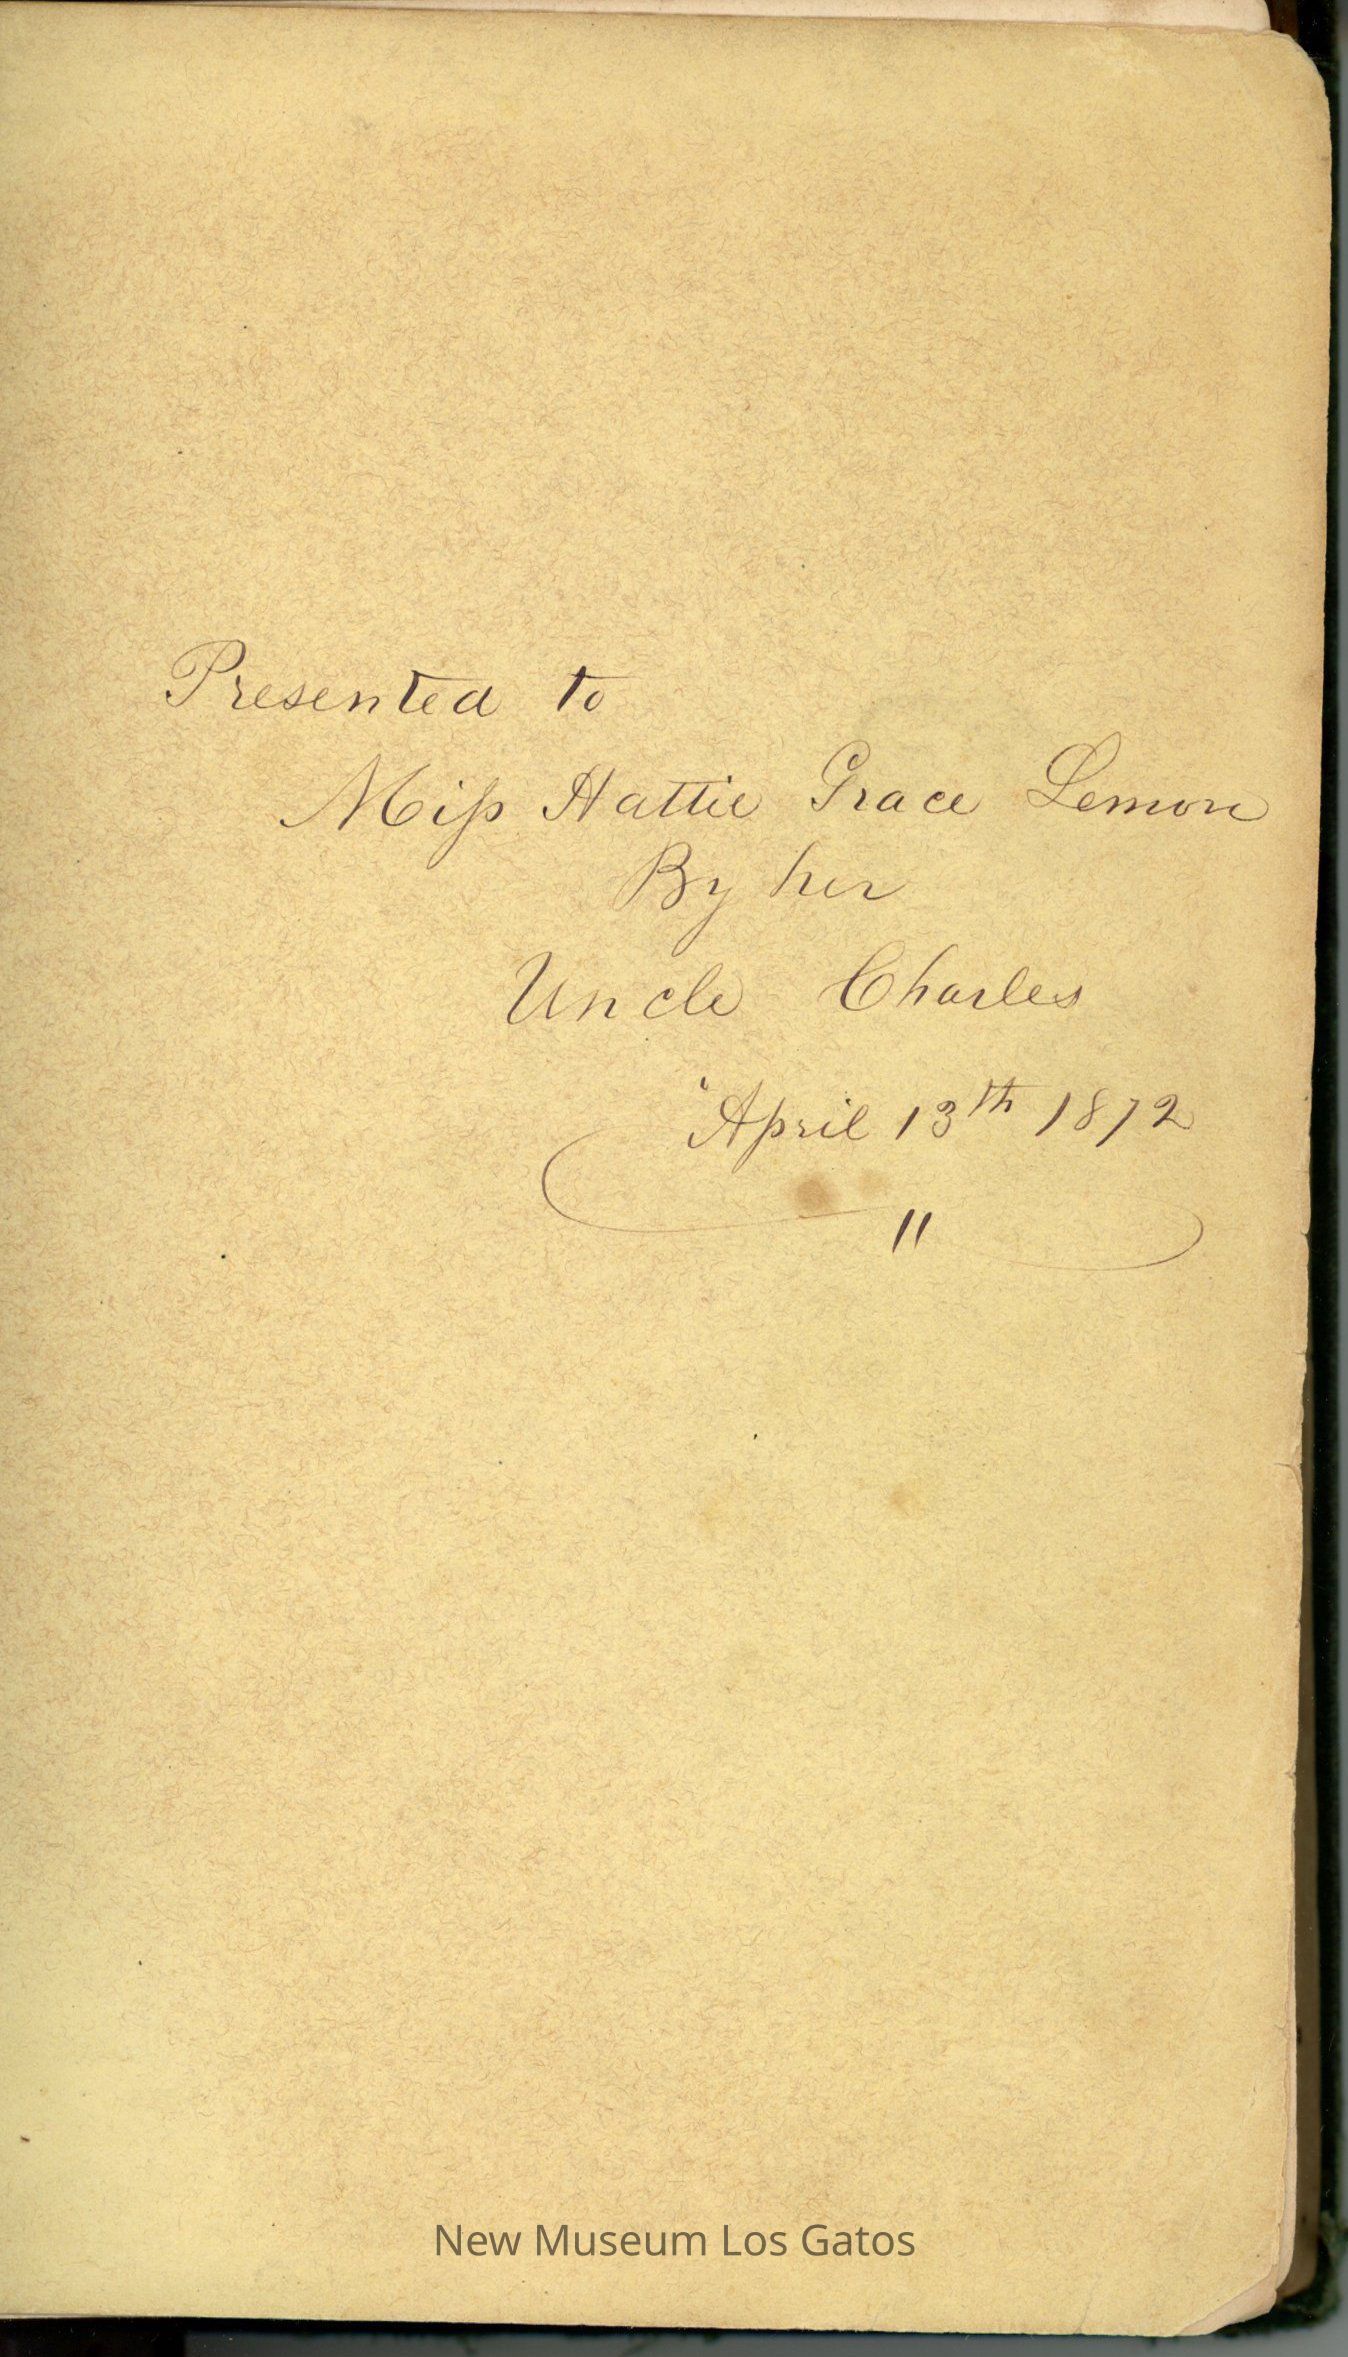 Presented to
Miſs Hattie Grace Lemon
By her
Uncle Charles
April 13th 1872
"
New Museum Los Gatos